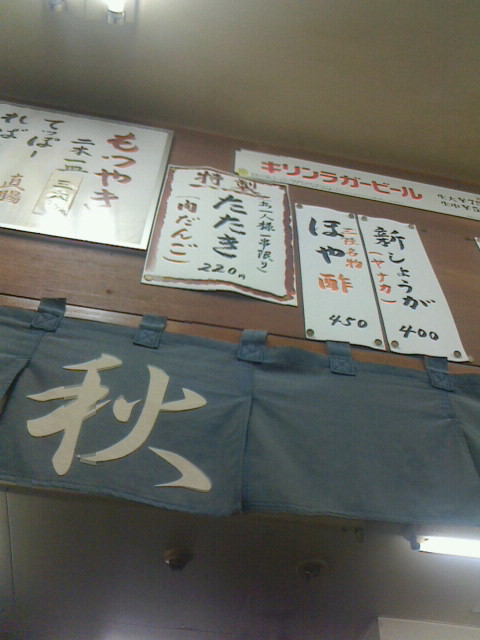 もつやき
二本一皿
てっぽー
れば
キリンラガービール
特製
お一人様一串限り
たたき
(肉だんご)
220円
三陸名物
ほや酢
450
新しょうが
(ヤナカ)
400
秋